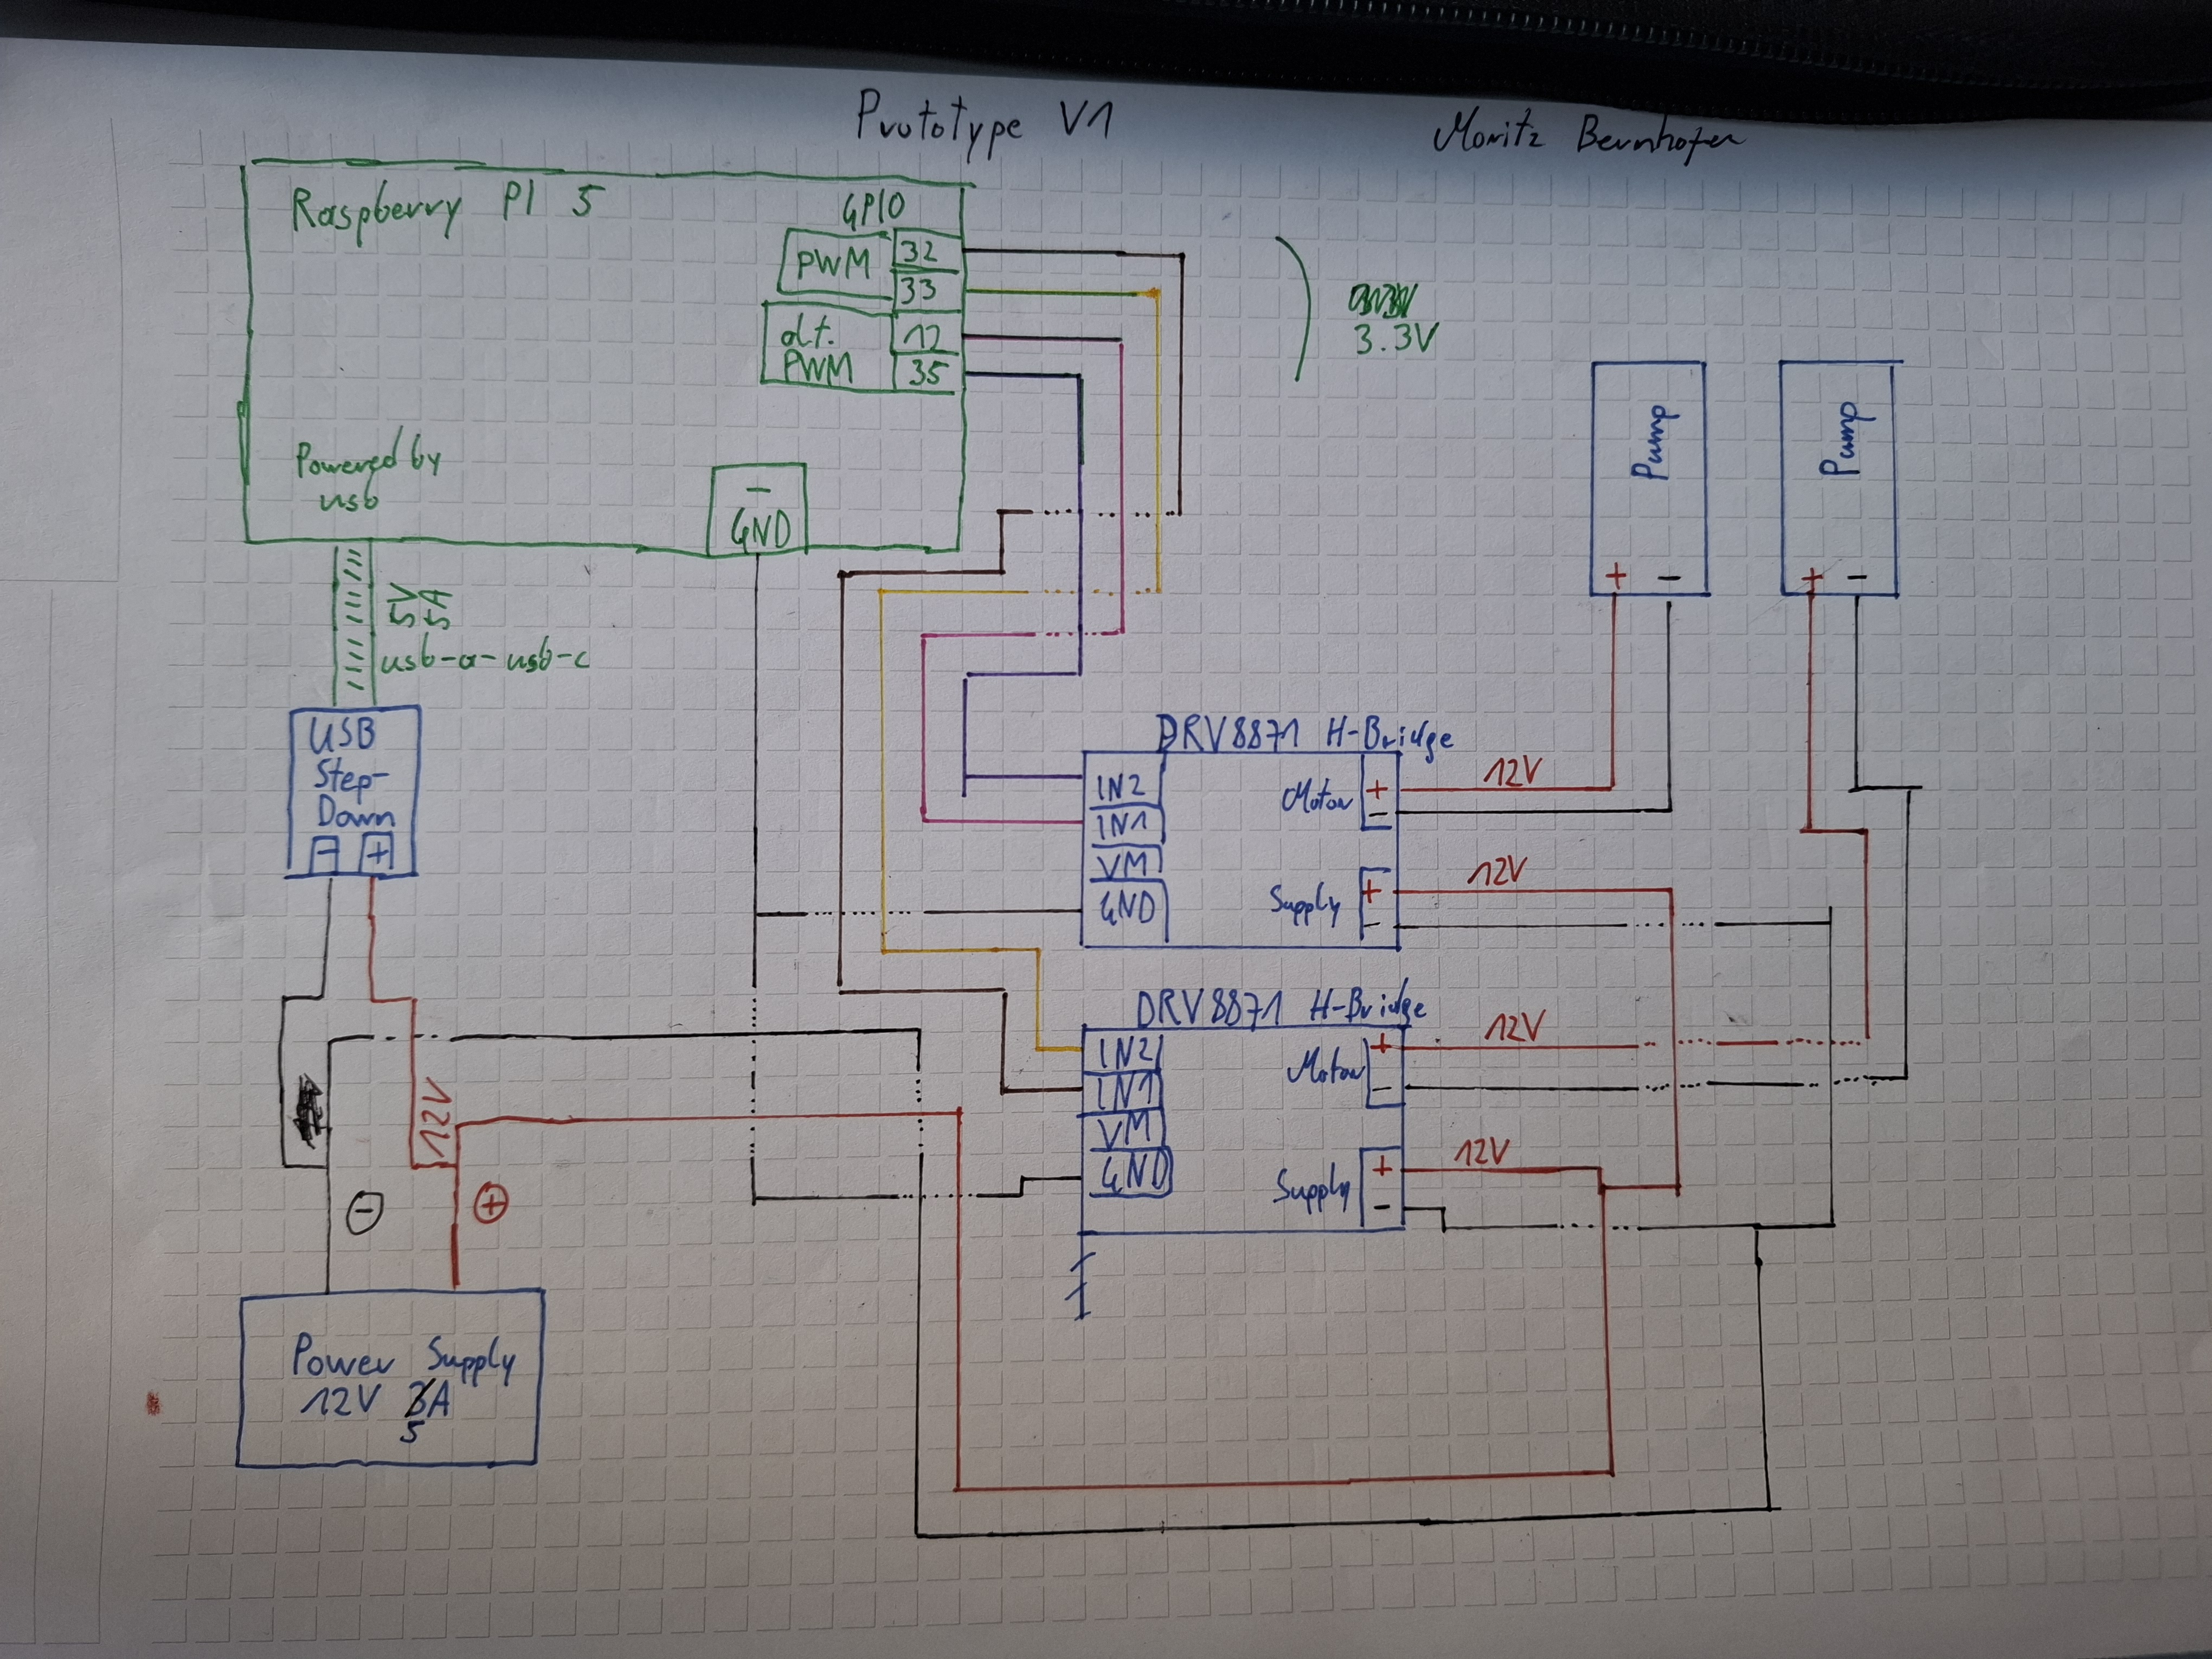 Prototype V1
Moritz Bernhofer
Raspberry PI 5
GPIO
PWM
32
33
alt.
PWM
12
35
3.3V
Powered by
usb
-
GND
5V
5A
usb-a-usb-c
USB
Step-
Down
- +
Pump
+ -
Pump
+ -
DRV8871 H-Bridge
IN2
IN1
VM
GND
Motor
+
-
12V
Supply
+
-
12V
DRV8871 H-Bridge
IN2
IN1
VM
GND
Motor
+
-
12V
Supply
+
-
12V
12V
- +
Power Supply
12V 3A
5